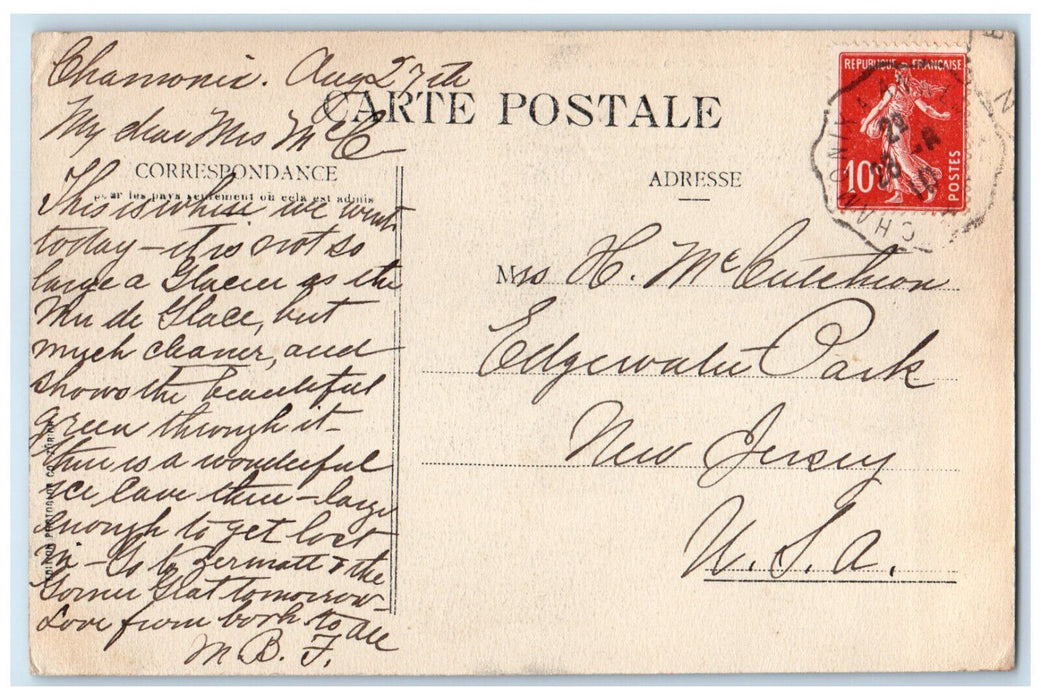 Chamonix. Aug 27th
CARTE POSTALE
My dear Mrs McC
CORRESPONDANCE
pour les pays seulement où cela est admis
This is where we went
today - it is not so
large a Glacier as the
Mer de Glace, but
much cleaner, and
shows the beautiful
green through it -
There is a wonderful
ice cave there - large
enough to get lost
in - Go to Zermatt & the
Gorner Grat tomorrow
Love from both to all
M. B. F.
ADRESSE
Mrs H. McCutcheon
Edgewater Park
New Jersey
U. S. A.
REPUBLIQUE FRANÇAISE
10
POSTES
CHAMONIX